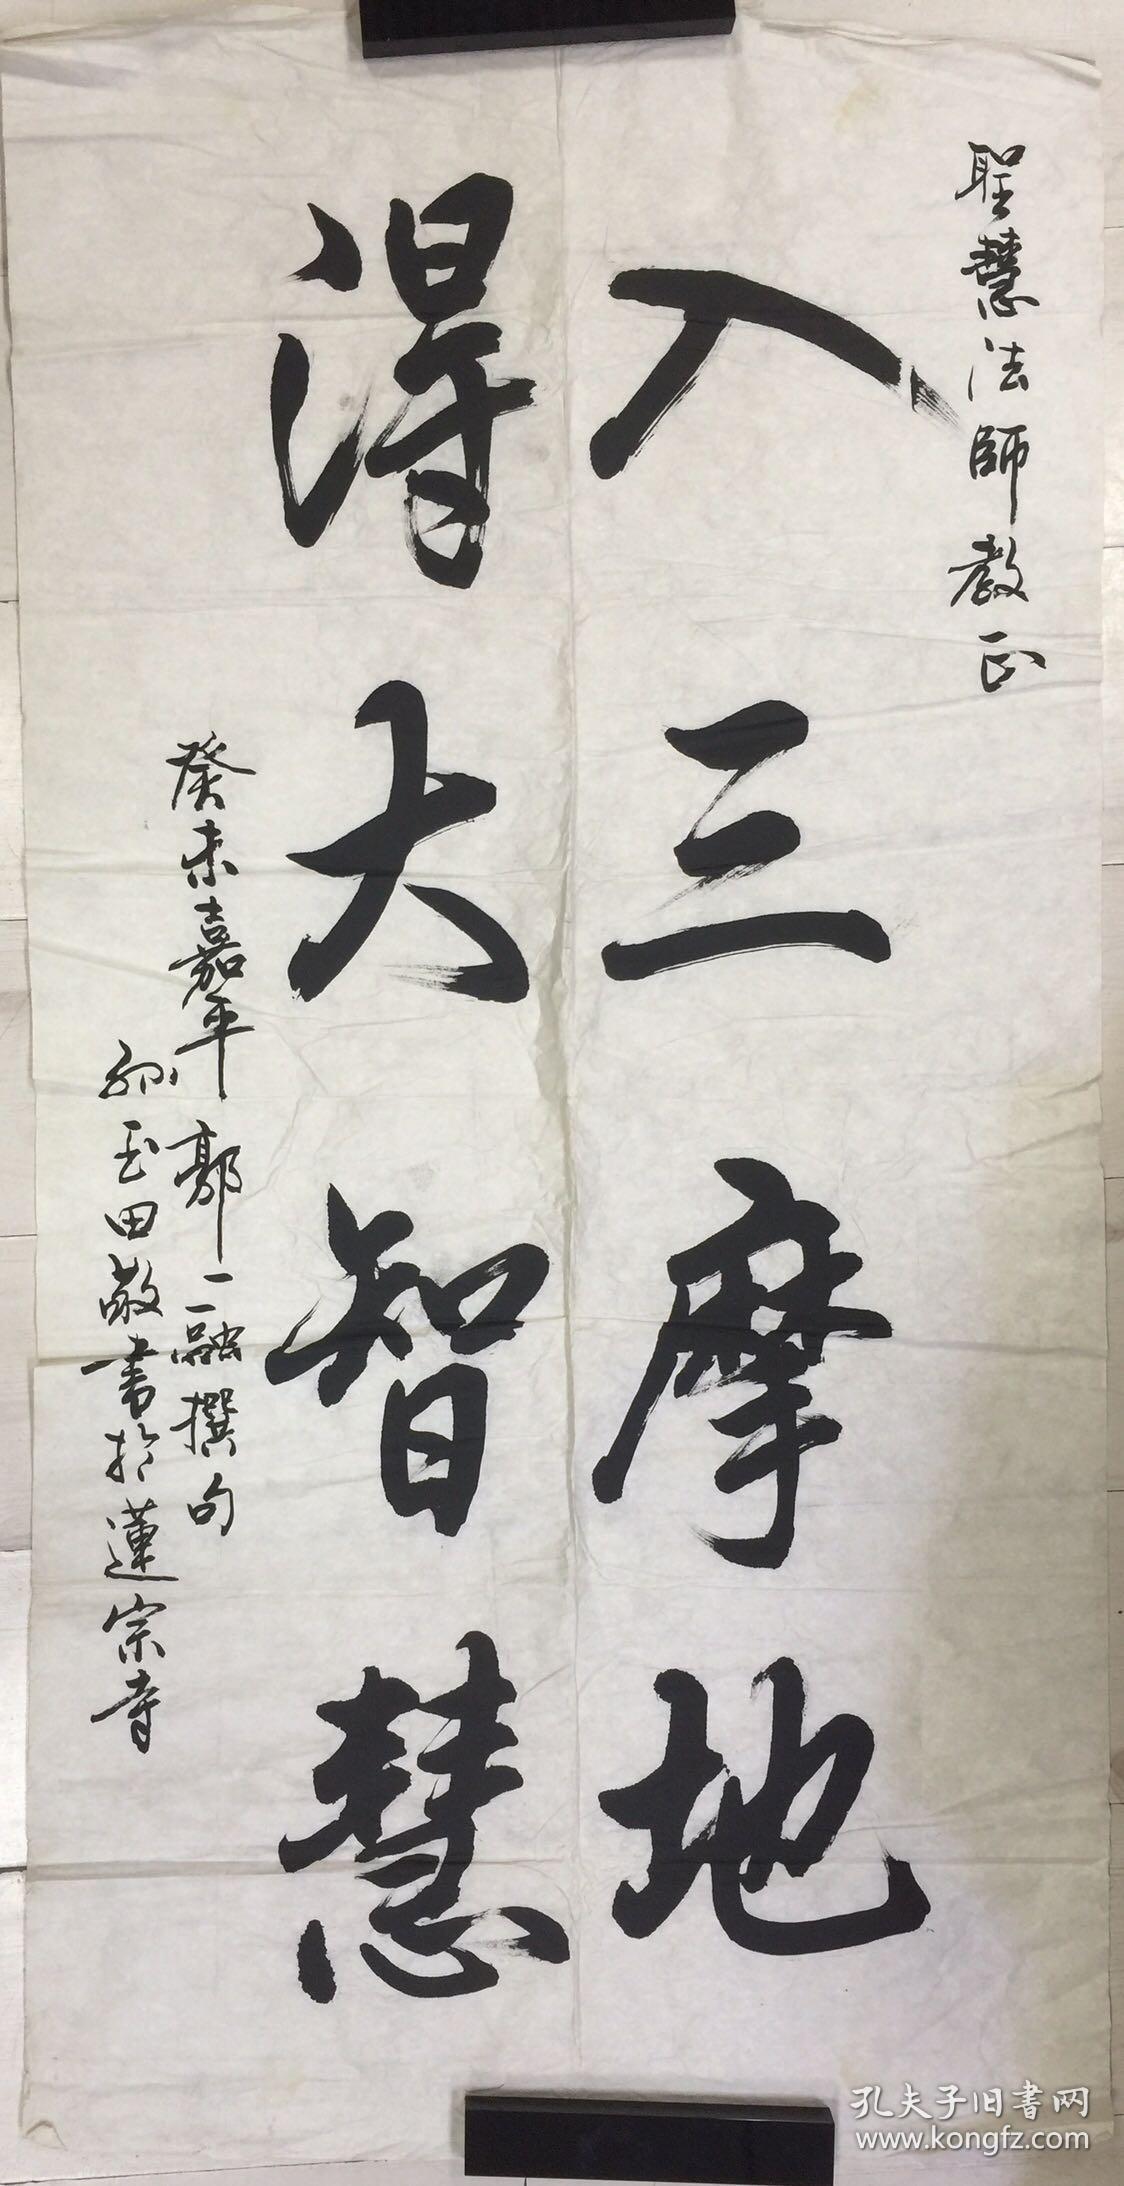 聖慧法師教正
入三摩地
得大智慧
癸未嘉平郭一二融撰句
孙玉田敬書於蓮宗寺
孔夫子旧书网
www.kongfz.com